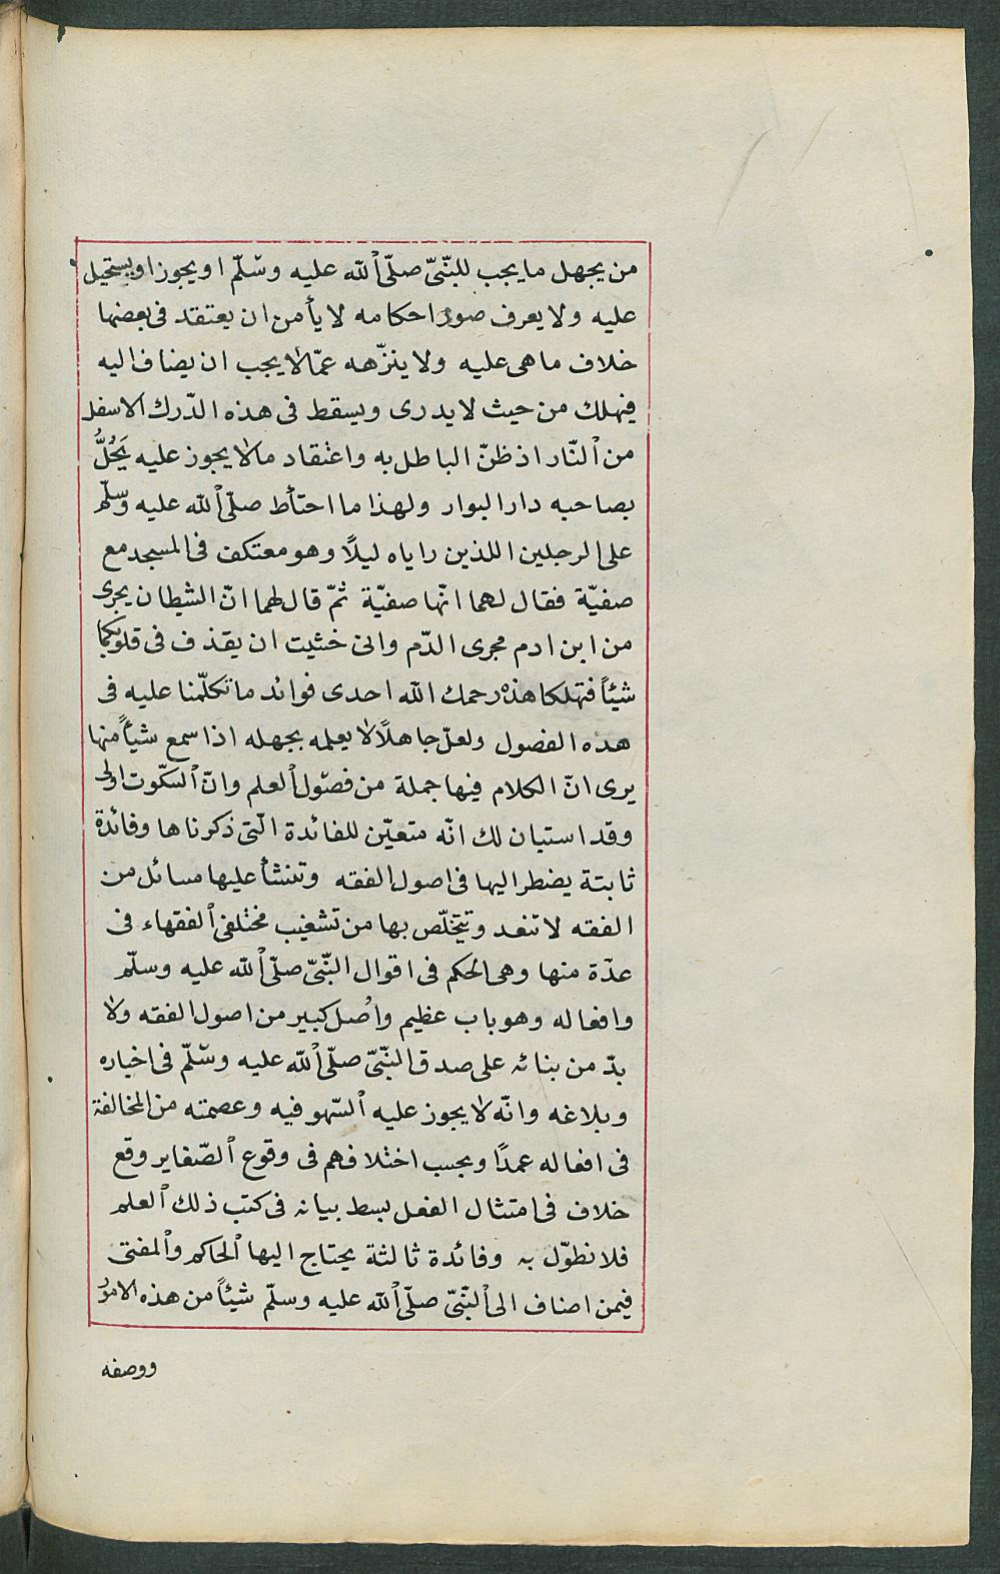 من يجهل ما يجب للنّبىّ صلّى ٱلله عليه وسّلّم او يجوز او يستحيل
عليه ولا يعرف صور احكامه لا يأمن ان يعتقد فى بعضها
خلاف ما هى عليه ولا ينزّهه عمّا لا يجب ان يضاف اليه
فيهلك من حيث لا يدرى ويسقط فى هذه الدّرك الاسفل
من ٱلنّار اذ ظنّ الباطل به واعتقاد ما لا يجوز عليه يَحُلُّ
بصاحبه دار البوار ولهذا ما احتأط صلّى ٱلله عليه وسلّم
على الرجلين اللذين راياه ليلًا وهو معتكف فى المسجد مع
صفيّة فقال لهما انّها صفيّة ثمّ قال لهما انّ الشيطان يجرى
من ابن ادم مجرى الدّم وانى خشيت ان يقذف فى قلوبكما
شيئًا فتهلكا هذه رحمك الله احدى فوائد ما تكلّمنا عليه فى
هذه الفصول ولعلّ جاهلًا لا يعلمه بجهله اذا سمع شيأً منها
يرى انّ الكلام فيها جملة من فصول ٱلعلم وانّ ٱلسكّوت اولى
وقد استبان لك انّه متعيّن للفائدة الّتى ذكرناها وفائدة
ثابتة يضطر اليها فى اصول الفقه وتنشأ عليها مسائل من
الفقه لا تنعد وتيخلّص بها من تشغيب مختلفى ٱلفقهاء فى
عدّة منها وهى الحكم فى اقوال النّبىّ صلّى ٱلله عليه وسلّم
وافعاله وهو باب عظيم واصل كبير من اصول الفقه ولا
بدّ من بنائه على صدق النّبىّ صلّى ٱلله عليه وسّلّم فى اخباره
وبلاغه وانّه لا يجوز عليه ٱلسّهو فيه وعصمته من المخالفة
فى افعاله عمدًا وبحسب اختلافهم فى وقوع ٱلصّغاير وقع
خلاف فى امتثال الفعل بسط بيانه فى كتب ذلك ٱلعلم
فلا نطوّل به وفائدة ثالثة يحتاج اليها ٱلحاكم وٱلمفتى
فيمن اضاف الى ٱلنّبىّ صلّى ٱلله عليه وسلّم شيئًا من هذه الامور
ووصفه